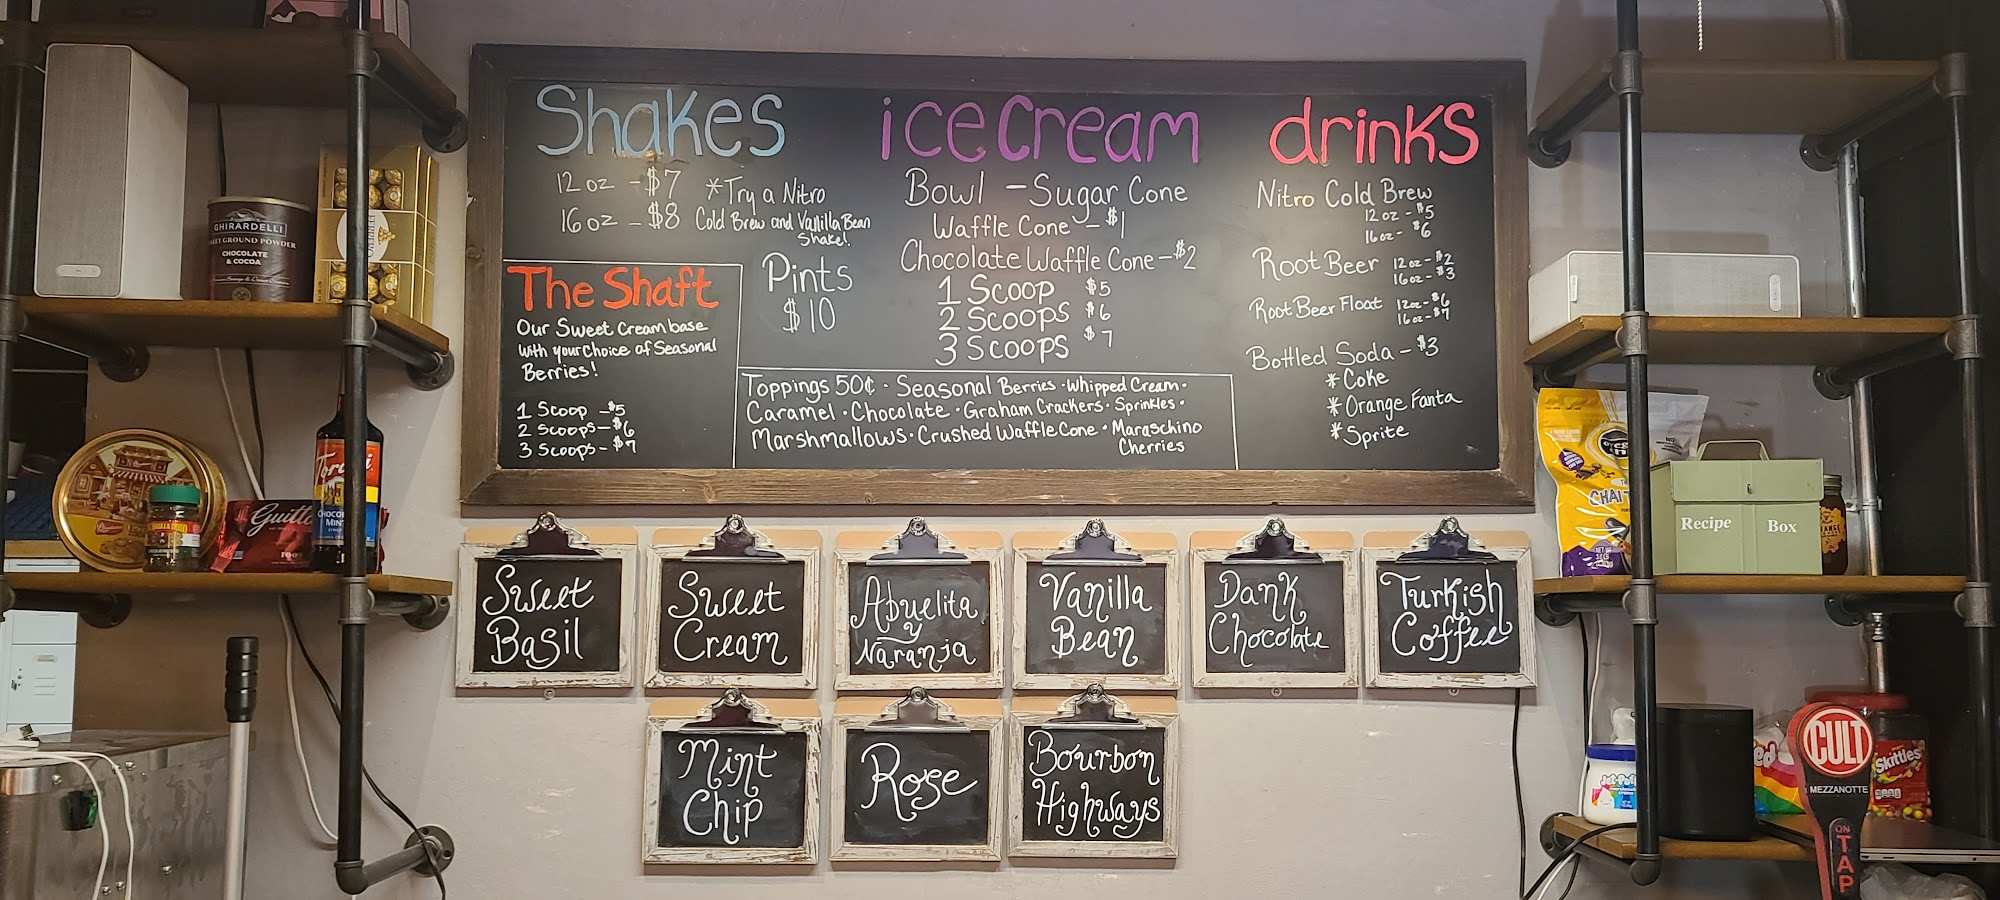 Shakes
12 oz - $7
16 oz - $8
*Try a Nitro
Cold Brew and Vanilla Bean
Shake!
The Shaft
Our Sweet Cream base
with your choice of Seasonal
Berries!
1 Scoop - $5
2 Scoops - $6
3 Scoops - $7
Pints
$10
ice cream
Bowl - Sugar Cone
Waffle Cone - $1
Chocolate Waffle Cone - $2
1 Scoop $5
2 Scoops $6
3 Scoops $7
Toppings 50¢ · Seasonal Berries · Whipped Cream ·
Caramel · Chocolate · Graham Crackers · Sprinkles ·
Marshmallows · Crushed Waffle Cone · Maraschino
Cherries
drinks
Nitro Cold Brew
12 oz - $5
16 oz - $6
Root Beer 12 oz - $2
16 oz - $3
Root Beer Float 12 oz - $6
16 oz - $7
Bottled Soda - $3
* Coke
* Orange Fanta
* Sprite
Sweet
Basil
Sweet
Cream
Abuelita
y
Naranja
Vanilla
Bean
Dank
Chocolate
Turkish
Coffee
Mint
Chip
Rose
Bourbon
Highways
GHIRARDELLI
GROUND POWDER
CHOCOLATE
& COCOA
Guitt
CHAI
Recipe Box
CULT
MEZZANOTTE
ON
TAP
Skittles